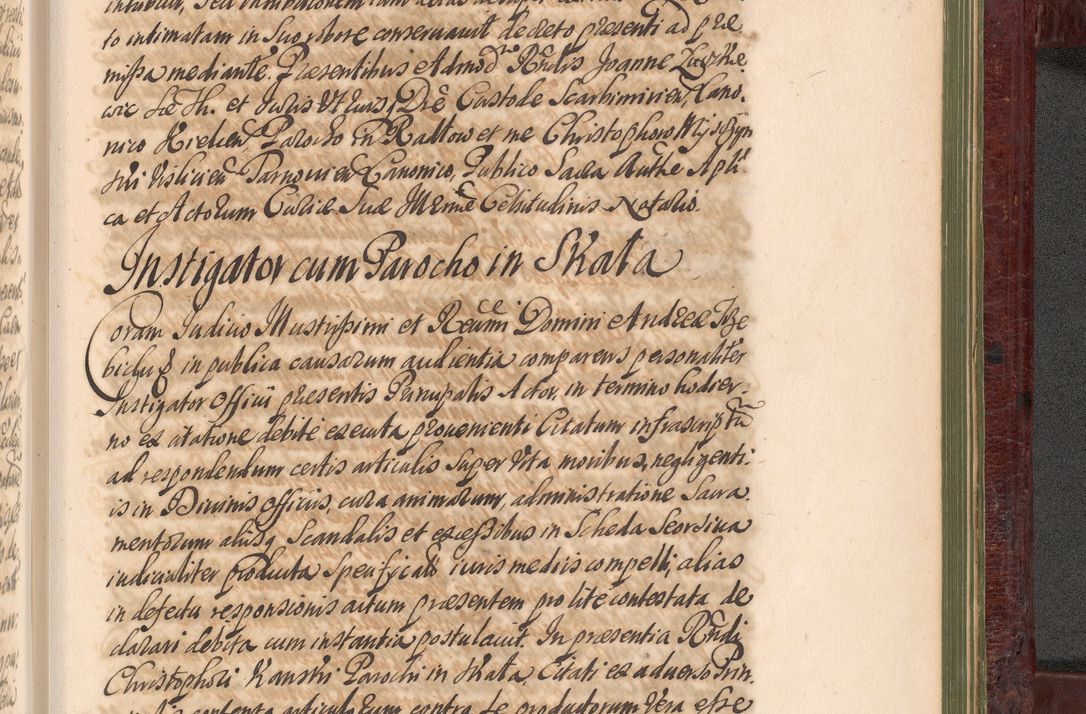 to intimatam in suo robore conservavit decreto præsenti ad præ
missa mediante. Præsentibus Admod Rndis Joanne
et Juris Utrius Dre Custode Scarbimirien, Cano
nico Kielcen, Parocho in Rakow et me Christophoro
Vislicien Tarnovien Canonico, Publico Sacra Authe Apli
ca et Actorum Curiæ Suæ Celsitudinis Notario.
Instigator cum Parocho in Skała
Coram Judicio Illustrissimi et Domini Andreæ Trze
bicky in publica causarum audientia comparens personaliter
Instigator Officii præsentis Principalis Actor, in termino hodier
no ex citatione debite executa provenienti Citatum infrascriptu
ad respondendum certis articulis super vita moribus, negligenti
is in Divinis Officiis, cura animarum, administratione Sacra
mentorum aliisq Scandalis et excessibus in Scheda Seorsiva
iudicialiter producta Specificatis iuris mediis compelli, alias
in defectu responsionis actum præsentem pro lite contestata de
clarari debita cum instantia postulavit. In præsentia Rndi
Christophori Kanski Parochi in Skala, Citati ex adverso Prin
contenta articulorum contra Se productorum Vera esse